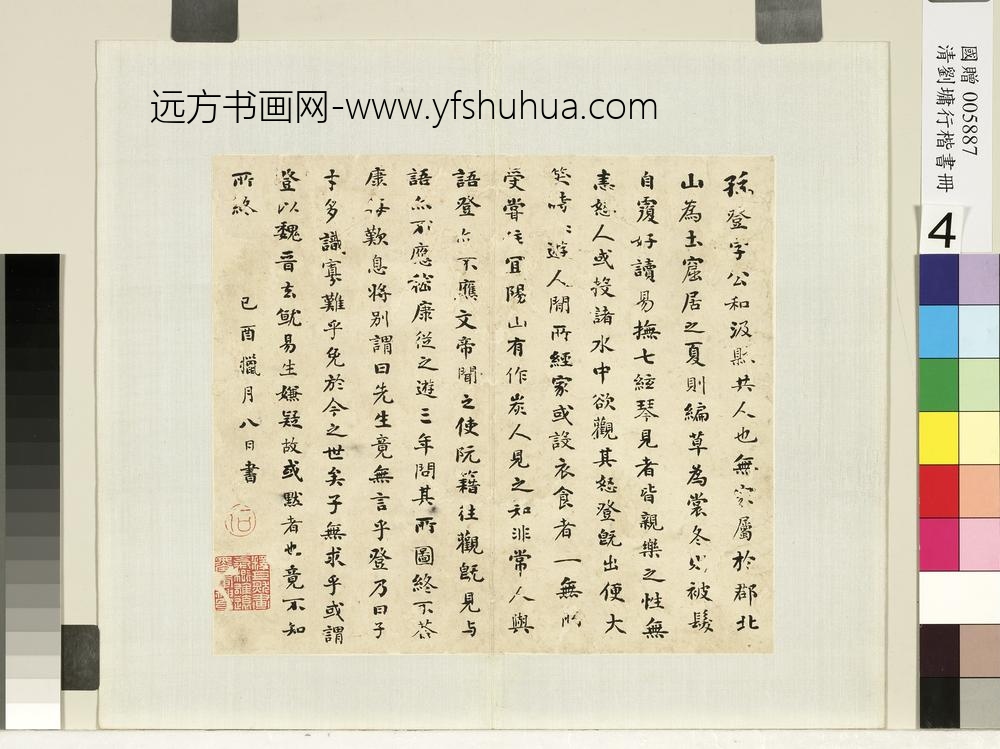 远方书画网-www.yfshuhua.com
國贈 005887
清劉墉行楷書冊
4
孫登字公和汲縣共人也無家屬於郡北
山為土窟居之夏則編草為裳冬則被髮
自覆好讀易撫七絃琴見者皆親樂之性無
恚怒人或投諸水中欲觀其怒登既出便大
笑時時遊人間所經家或設衣食者一無所
受嘗住宜陽山有作炭人見之知非常人與
語登亦不應文帝聞之使阮籍往觀既見与
語亦不應嵇康從之遊三年問其所圖終不荅
康每歎息将別謂曰先生竟無言乎登乃曰子
才多識寡難乎免於今之世矣子無求乎或謂
登以魏晋去就易生嫌疑故或默者也竟不知
所終
己酉臘月八日書
石